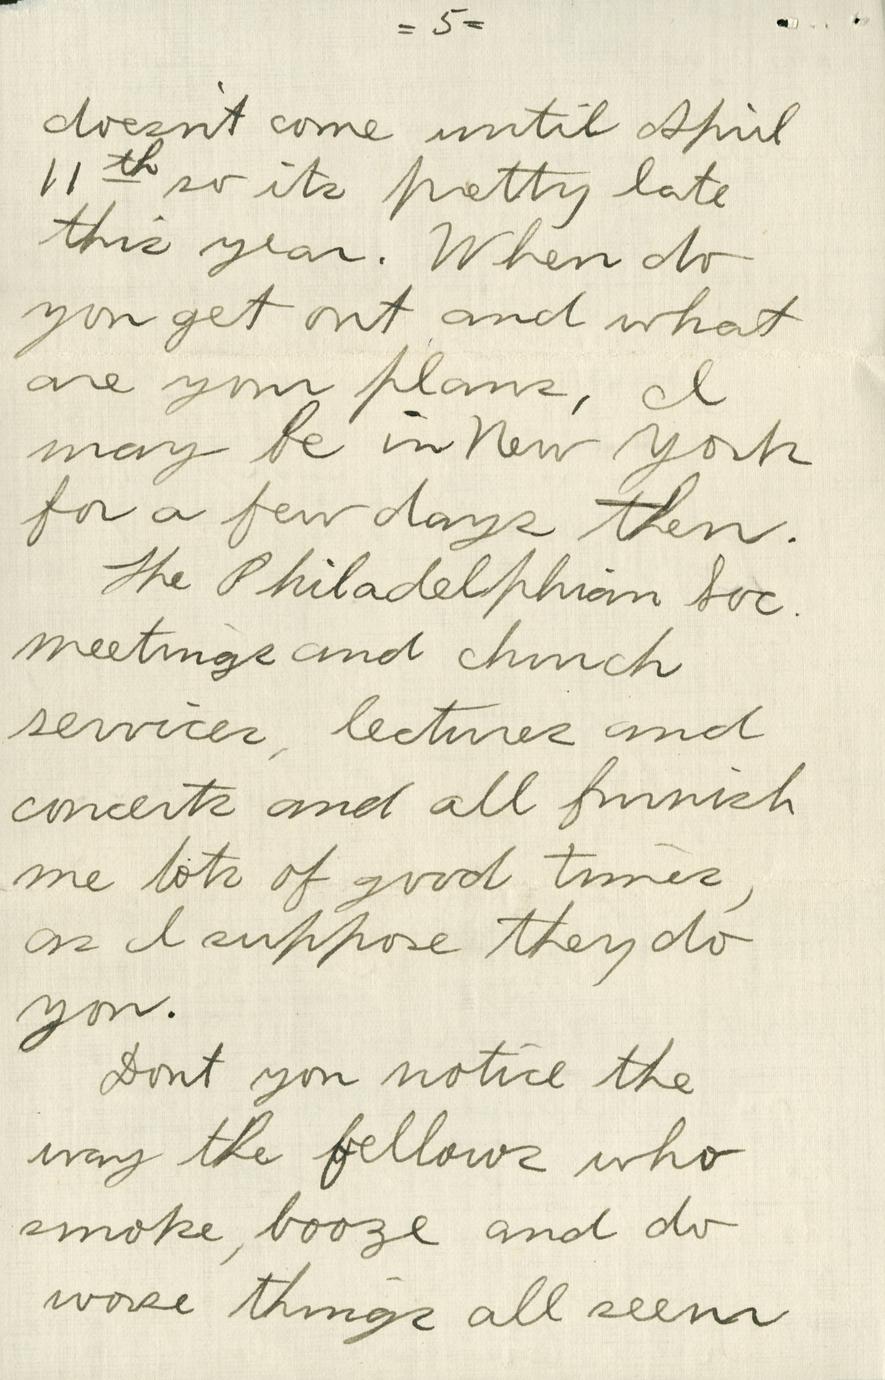 = 5 =
doesn't come until April
11th so its pretty late
this year. When do
you get out and what
are your plans, I
may be in New York
for a few days then.
The Philadelphian Soc.
meetings and church
services, lectures and
concerts and all furnish
me lots of good times,
as I suppose they do
you.
Dont you notice the
way the fellows who
smoke, booze and do
worse things all seem